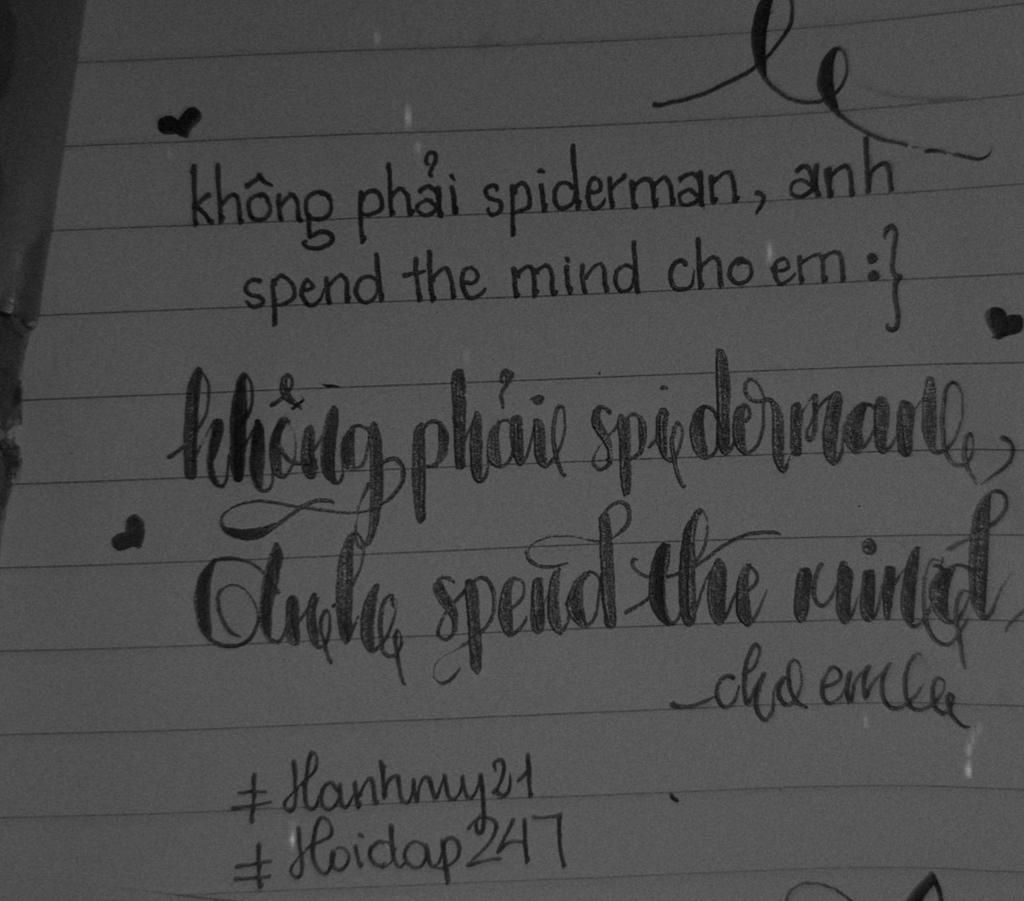 không phải spiderman, anh
spend the mind cho em :}
không phải spiderman,
Anh spend the mind
cho em
#Hanhmy21
#Hoidap247